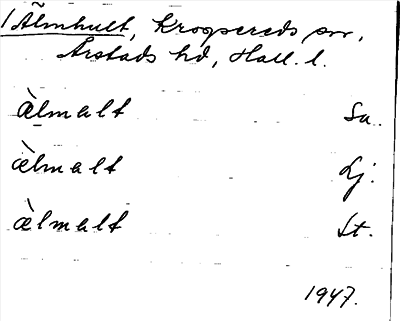 Älmhult, Krogsereds sn,
Årstads hd, Hall. l.
æ̀lmalt Su.
æ̀lmalt Lj.
æ̀lmalt St.
1947.